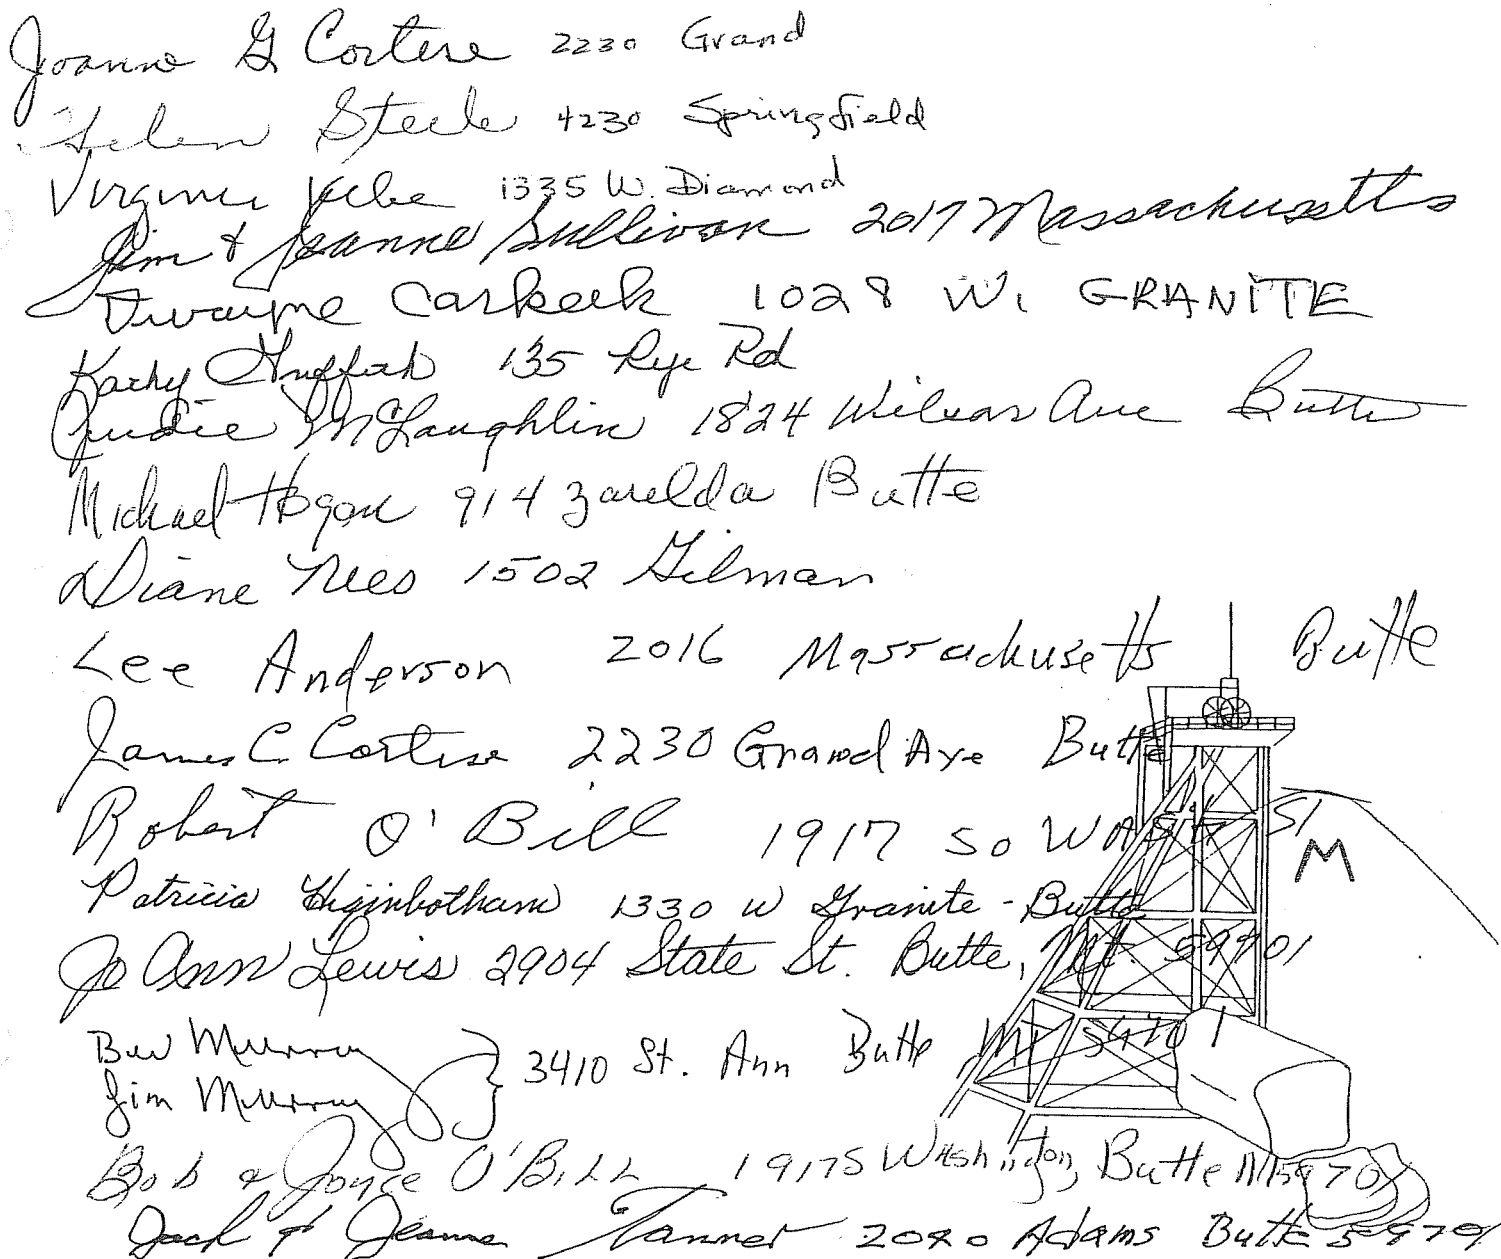 Joanne G Cortese 2230 Grand
Helen Steele 4230 Springfield
Virginia 1335 W. Diamond
Jim & Jeanne Sullivan 2017 Massachusetts
Dwayne Carkeek 1028 W. GRANITE
Kathy Griffith 135 Rye Rd
Judie McLaughlin 1824 Wilson Ave Butte
Michael Hogan 914 Zarelda Butte
Diane Nees 1502 Gilman
Lee Anderson 2016 Massachusetts Butte
James C. Cortese 2230 Grand Ave Butte
Robert O'Bill 1917 So WASH St
M
Patricia Higinbotham 1330 W Granite - Butte
Jo Ann Lewis 2904 State St. Butte, Mt. 59701
Bev Murray
Jim Murray } 3410 St. Ann Butte MT 59701
Bob & Joyce O'Bill 1917 S Washington, Butte Mt 5970
Jack & Jeanne Tanner 2040 Adams Butte 59701